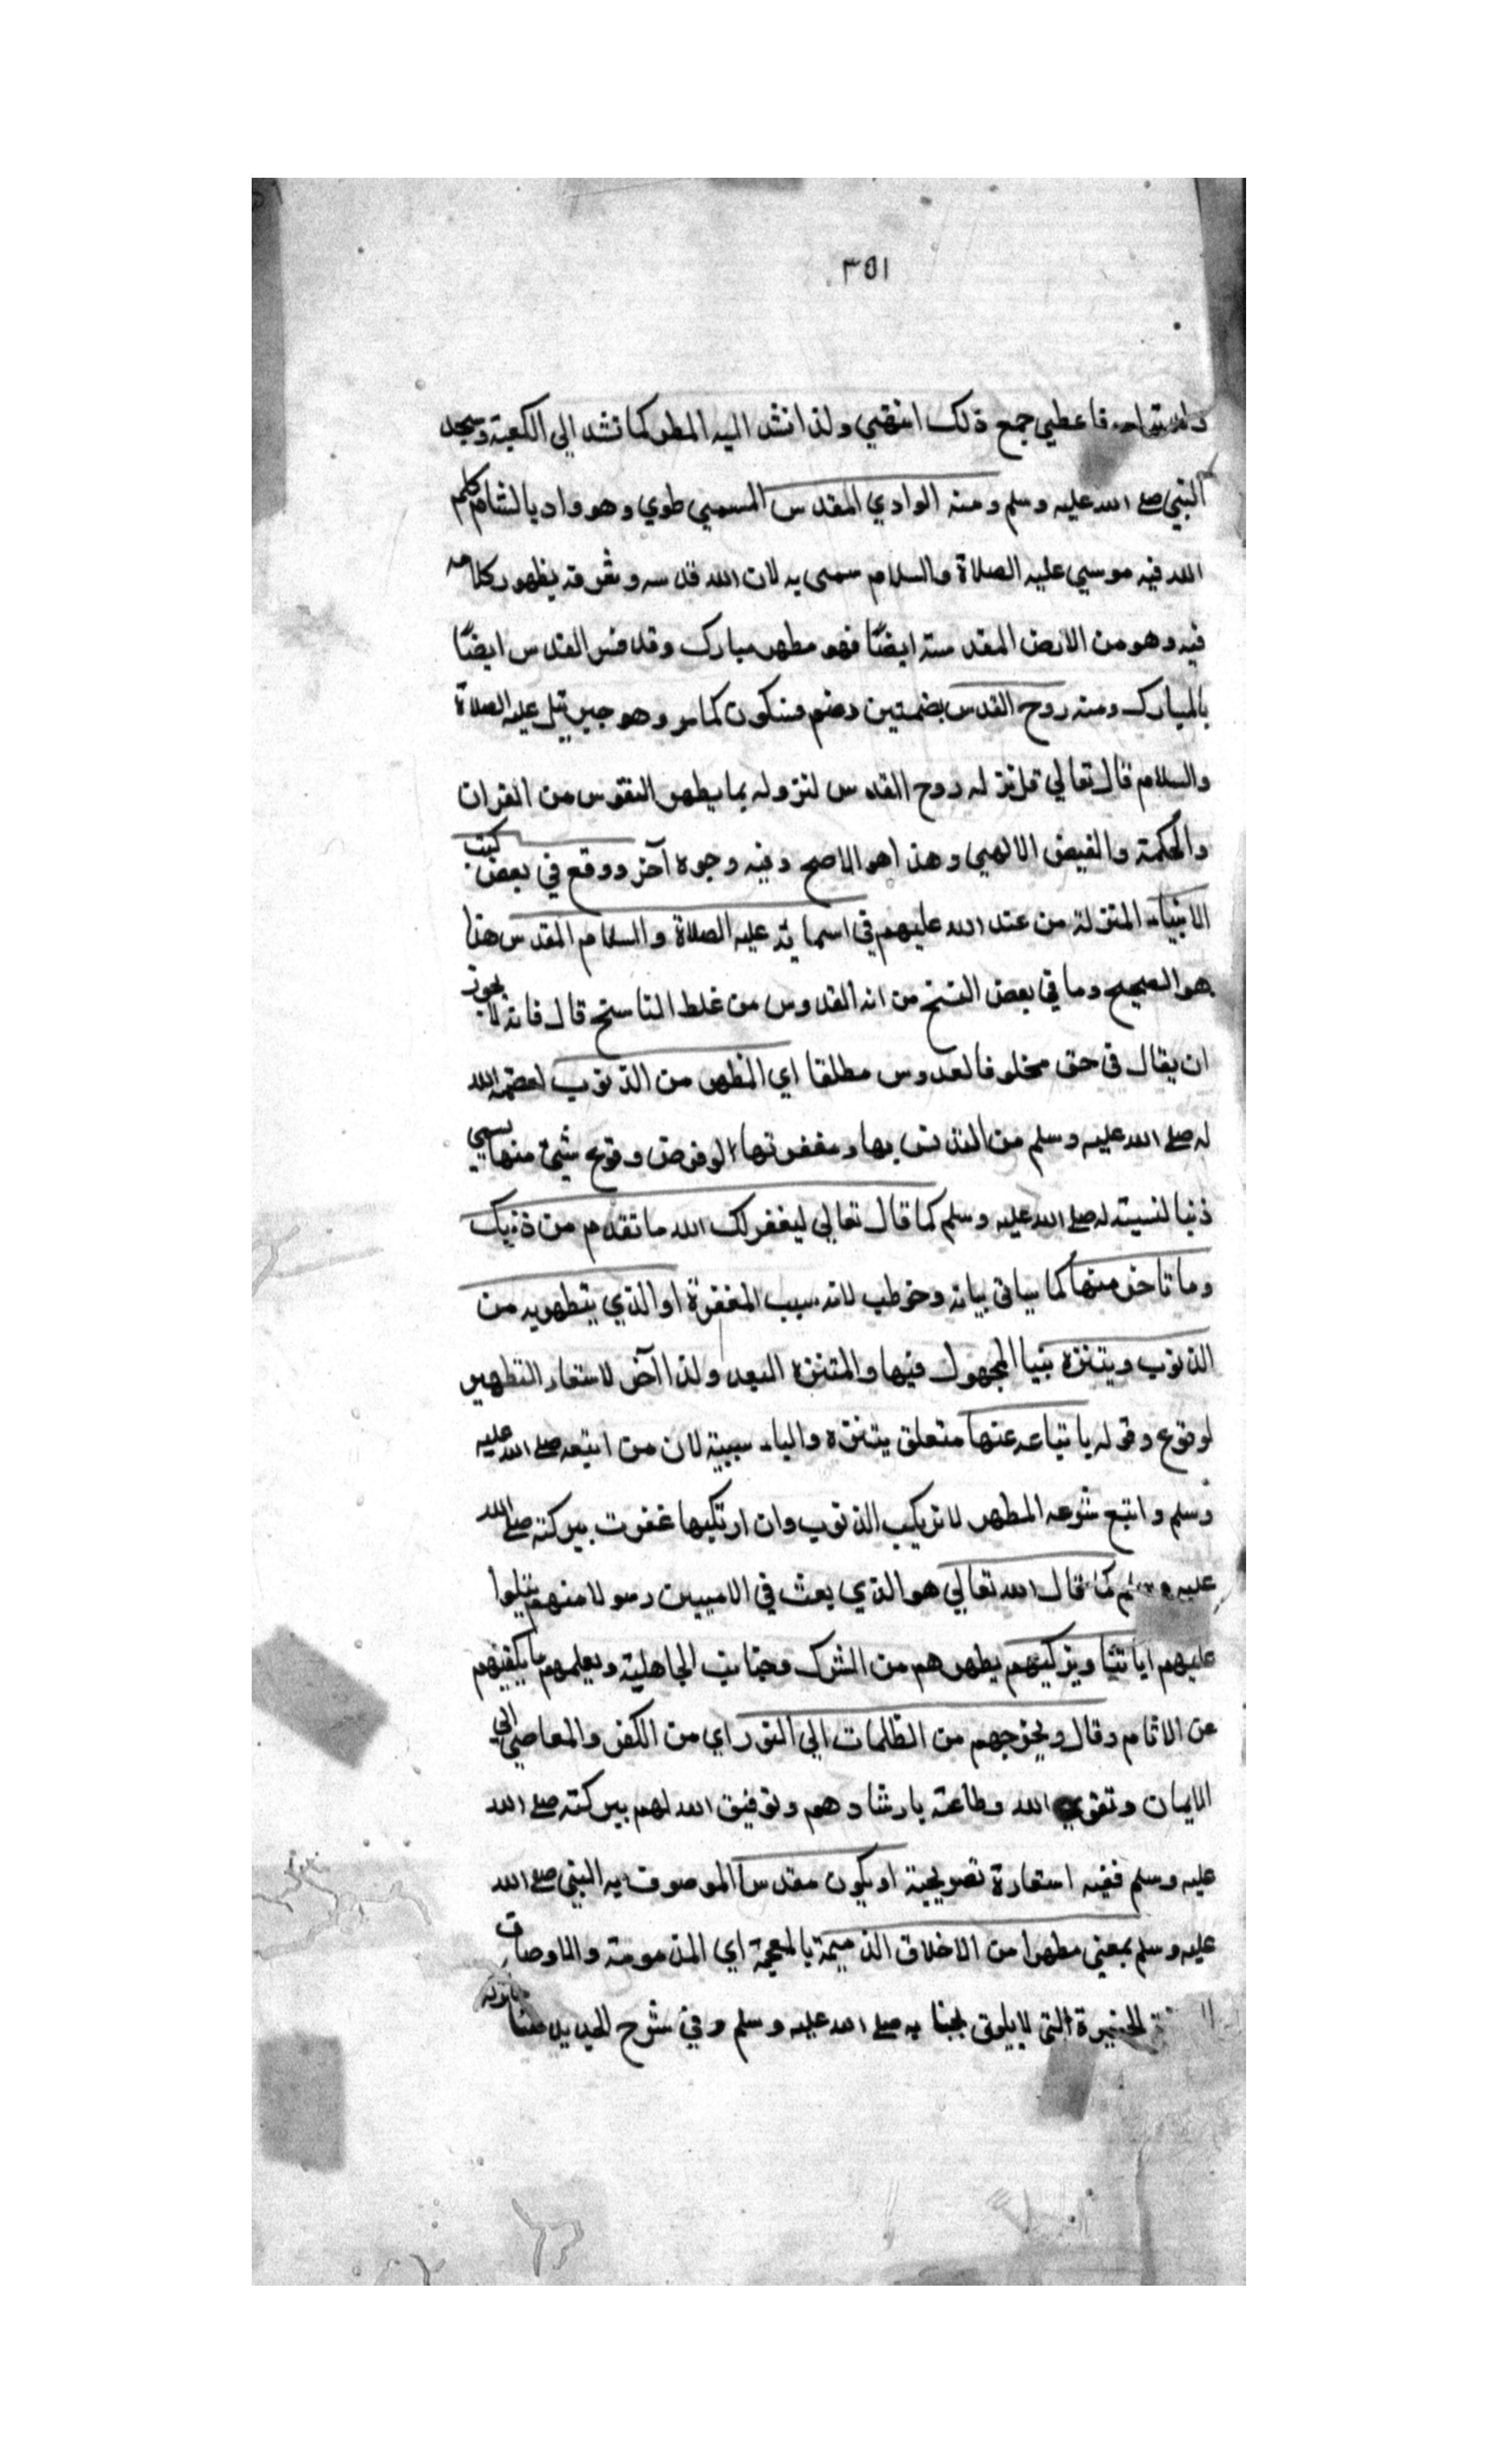 ٣٥١
فاعطي جمع ذلك انتهي ولذا تشد اليه المطي كما تشد الي الكعبة ومسجد
النبي صلى الله عليه وسلم ومنه الوادي المقدس المسمي طوي وهو واد بالشام كلم
الله فيه موسي عليه الصلاة والسلام سمى به لان الله قدسه وشرفه بظهور كلامه
فيه وهو من الارض المقدسة ايضًا فهو مطهر مبارك وقد فسر القدس ايضًا
بالمبارك ومنه روح القدس بضمتين وضم فسكون كما مر وهو جبريل عليه الصلاة
والسلام قال تعالي قل نزله روح القدس لنزوله بما يطهر النفوس من القران
والحكمة والفيض الالهي وهذا هو الاصح وفيه وجوه آخر ووقع في بعض كتب
الانبياء المنزلة من عند الله عليهم في اسمائه عليه الصلاة والسلام المقدس هذا
هو الصحيح وما في بعض النسخ من انه القدوس من غلط الناسخ قال فانه لا يجوز
ان يقال في حق مخلوق القدوس مطلقا اي المطهر من الذنوب لعصمة الله
له صلى الله عليه وسلم من التدنس بها ومغفرتها لو فرض وقوع شيئ منها يسمي
ذنبا لنسبته له صلى الله عليه وسلم كما قال تعالي ليغفر لك الله ما تقدم من ذنبك
وما تاخر منها كما سياتي بيانه وخوطب لانه سبب المغفرة او الذي يتطهر به من
الذنوب ويتنزه المجهول فيها والمتنزه البعد ولذا آخر لاستعار التطهير
لوقوع وقوله باتباعه عنها متعلق بيتنزه والباء سببية لان من اتبعه صلى الله عليه
وسلم واتبع شرعه المطهر لا يرتكب الذنوب وان ارتكبها غفرت ببركته صلى الله
عليه وسلم كما قال الله تعالي هو الذي بعث في الاميين رسولا منهم يتلوا
عليهم اياتنا ويزكيهم يطهرهم من الشرك وخبايث الجاهلية ويعلمهم ما يكفيهم
عن الاثام وقال ويخرجهم من الظلمات الي النور اي من الكفر والمعاصي الي
الايمان وتقوي الله وطاعته بارشادهم وتوفيق الله لهم ببركته صلى الله
عليه وسلم ففيه استعارة تصريحية او يكون مقدسا الموصوف به النبي صلى الله
عليه وسلم بمعني مطهرا من الاخلاق الذميمة بالمعجمة اي المذمومة والاوصاف
التي لا يليق بجنابه صلى الله عليه وسلم وفي شرح